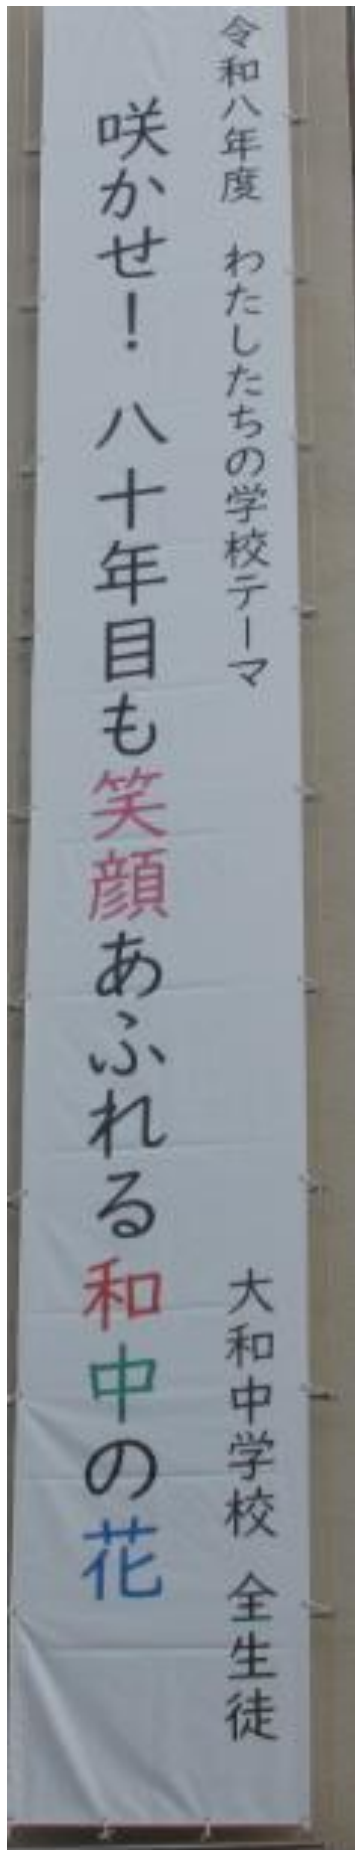 令和八年度　わたしたちの学校テーマ
咲かせ！　八十年目も笑顔あふれる和中の花
大和中学校　全生徒